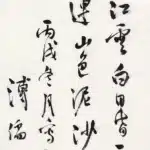 江雲白日昏
山色泥沙
丙戌冬月
溥儒